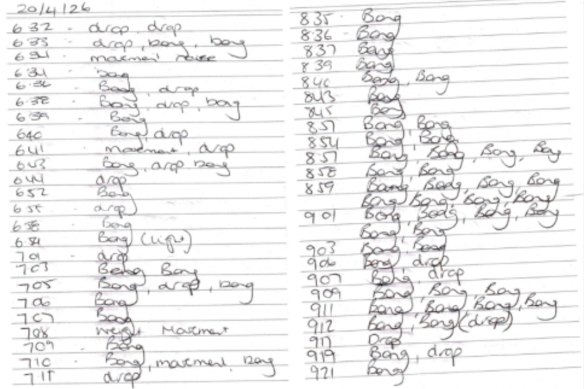 20/4/26
632 - drop, drop
633 - drop, bang, bang
634 - movement noise
634 - bang
636 - Bang, drop
638 - Bang, drop, bang
639 - Bang
640 Bang, drop
641 - movement, drop
643 Bang, drop bang
644 drop
652 Bang
655 drop
658 Bang
659 Bang (light)
701 drop
703 Bang Bang
705 Bang, drop, bang
706 Bang
707 Bang
708 weight Movement
709 - Bang
710 - Bang, movement, Bang
711 drop
835 - Bang
836 - Bang
837 Bang
839 Bang
840 Bang, Bang
843 Bang
845 Bang
851 Bang, Bang
854 Bang, Bang
857 Bang, Bang, Bang, Bang
858 Bang, Bang
859 Bang, Bang, Bang, Bang
Bang, Bang, Bang, Bang
901 Bang, Bang, Bang, Bang
Bang, Bang
903 Bang, Bang
906 Bang, drop
907 Bang, drop
909 Bang, Bang, Bang
911 Bang, Bang, Bang, Bang
912 Bang, Bang (drop)
917 Drop
919 Bang, drop
921 Bang